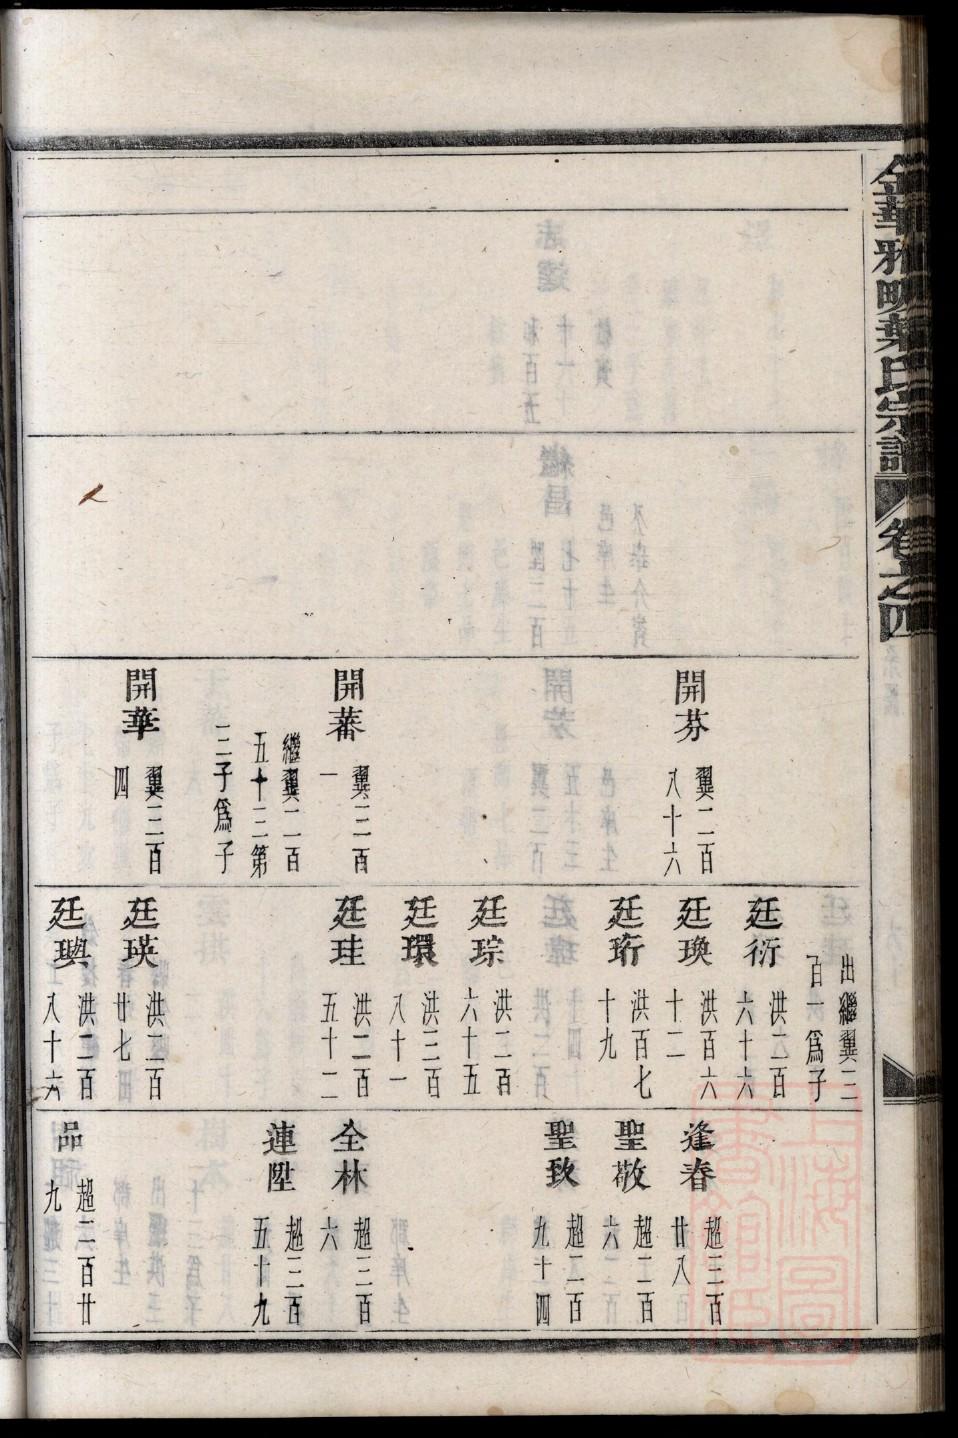 金華雅畈葉氏宗譜
卷之四
開芬
翼二百
八十六
開蕃
翼三百
一
繼翼二百
五十三第
三子爲子
開華
翼三百
四
出繼翼三
百一爲子
廷衍
洪二百
六十六
廷瑍
洪百六
十二
廷珩
洪百七
十九
廷琮
洪二百
六十五
廷環
洪三百
八十一
廷珪
洪二百
五十二
廷瑛
洪三百
廿七
廷璵
洪二百
八十六
逢春
超三百
廿八
聖敬
超二百
六
聖致
超二百
九十四
全林
超三百
六
連陞
超三百
五十九
品
超二百廿
九